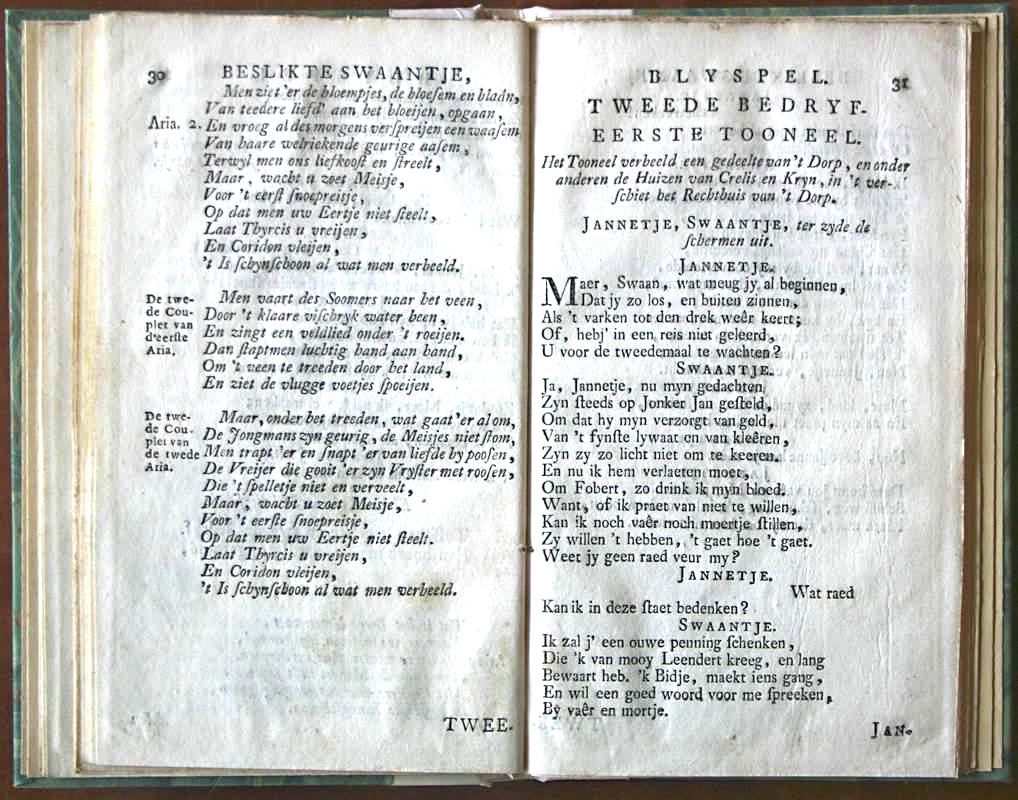 30 BESLIKTE SWAANTJE,
Men ziet 'er de bloempjes, de bloeſem en bladn,
Van teedere liefd' aan het bloeijen, opgaan,
Aria. 2. En vroeg al des morgens verſpreijen een waaſem
Van haare welriekende geurige aaſem,
Terwyl men ons liefkooſt en ſtreelt,
Maar, wacht u zoet Meisje,
Voor 't eerſt ſnoepreisje,
Op dat men uw Eertje niet ſteelt,
Laat Thyrcis u vreijen,
En Coridon vleijen,
't Is ſchynſchoon al wat men verbeeld.
De twe-
de Cou-
plet van
d'eerſte
Aria.
Men vaart des Soomers naar het veen,
Door 't klaare viſchryk water heen,
En zingt een veldlied onder 't roeijen.
Dan ſtaptmen luchtig hand aan hand,
Om 't veen te treeden door het land,
En ziet de vlugge voetjes ſpoeijen.
De twe-
de Cou-
plet van
de twede
Aria.
Maar, onder het treeden, wat gaat 'er al om,
De Jongmans zyn geurig, de Meisjes niet ſtom,
Men trapt 'er en ſnapt 'er van liefde by pooſen,
De Vreijer die gooit 'er zyn Vryſter met rooſen,
Die 't ſpelletje niet en verveelt,
Maar, wacht u zoet Meisje,
Voor 't eerſte ſnoepreisje,
Op dat men uw Eertje niet ſteelt.
Laat Thyrcis u vreijen,
En Coridon vleijen,
't Is ſchynſchoon al wat men verbeeld.
TWEE-
BLYSPEL. 31
TWEEDE BEDRYF.
EERSTE TOONEEL.
Het Tooneel verbeeld een gedeelte van 't Dorp, en onder
anderen de Huizen van Crelis en Kryn, in 't ver-
ſchiet het Rechthuis van 't Dorp.
JANNETJE, SWAANTJE, ter zyde de
ſchermen uit.
JANNETJE.
Maer, Swaan, wat meug jy al beginnen,
Dat jy zo los, en buiten zinnen,
Als 't varken tot den drek weêr keert;
Of, hebj' in een reis niet geleerd,
U voor de tweedemaal te wachten?
SWAANTJE.
Ja, Jannetje, nu myn gedachten
Zyn ſteeds op Jonker Jan geſteld,
Om dat hy myn verzorgt van geld,
Van 't fynſte lywaat en van kleêren,
Zyn zy zo licht niet om te keeren.
En nu ik hem verlaeten moet,
Om Fobert, zo drink ik myn bloed.
Want, of ik praet van niet te willen,
Kan ik noch vaêr noch moertje ſtillen,
Zy willen 't hebben, 't gaet hoe 't gaet.
Weet jy geen raed veur my?
JANNETJE.
Wat raed
Kan ik in deze ſtaet bedenken?
SWAANTJE.
Ik zal j' een ouwe penning ſchenken,
Die 'k van mooy Leendert kreeg, en lang
Bewaart heb. 'k Bidje, maekt iens gang,
En wil een goed woord voor me ſpreeken,
By vaêr en mortje.
JAN-